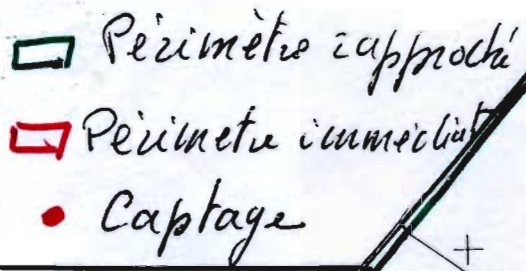 Périmètre rapproché
Périmetre immédiat
Captage